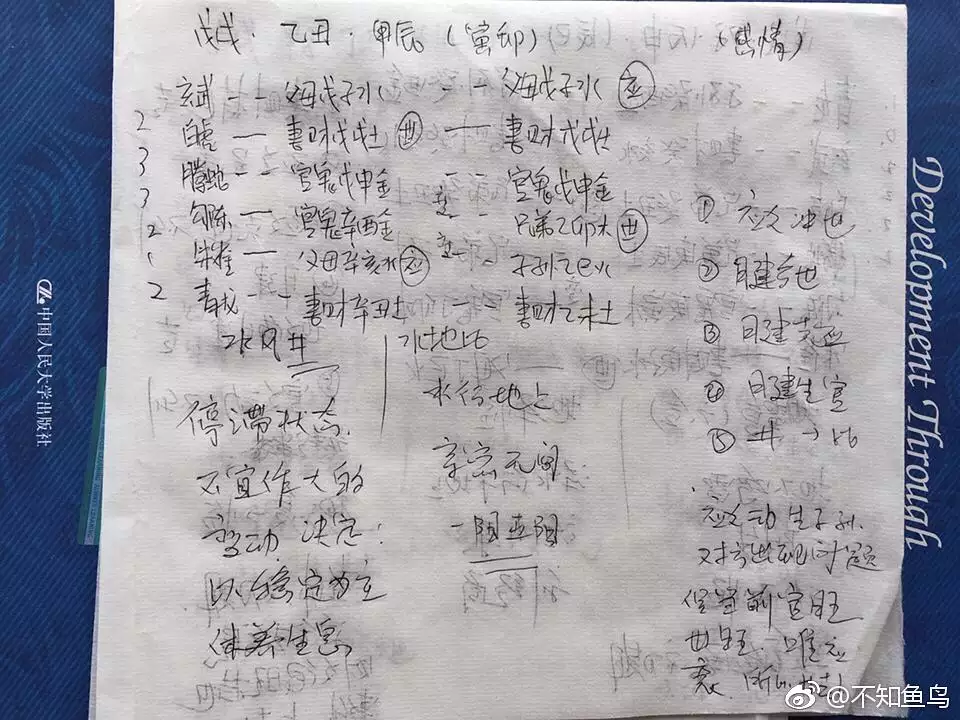 戊戌·乙丑·甲辰（寅卯）（感情）
玄武 -- 父母戊子水 -- 父母戊子水 应
2 白虎 — 妻财戊戌土 世 — 妻财戊戌土
3 腾蛇 -- 官鬼戊申金 -- 官鬼戊申金
3 勾陈 — 官鬼辛酉金 变 -- 兄弟乙卯木 世
2 朱雀 — 父母辛亥水 应 变 -- 子孙乙巳火
2 青龙 -- 妻财辛丑土 妻财乙未土
水风井
水地比
停滞状态
不宜作大的
变动 决定：
以稳定为主
休养生息
水行地上
亲密无间
一阳五阴
① 应爻冲世
② 日建合世
③ 日建克应
④ 日建生官
⑤ 井→比
应爻动生子孙
对方出现问题
但当前官旺
世旺 唯应
衰
中国人民大学出版社
Development Through
@不知鱼鸟